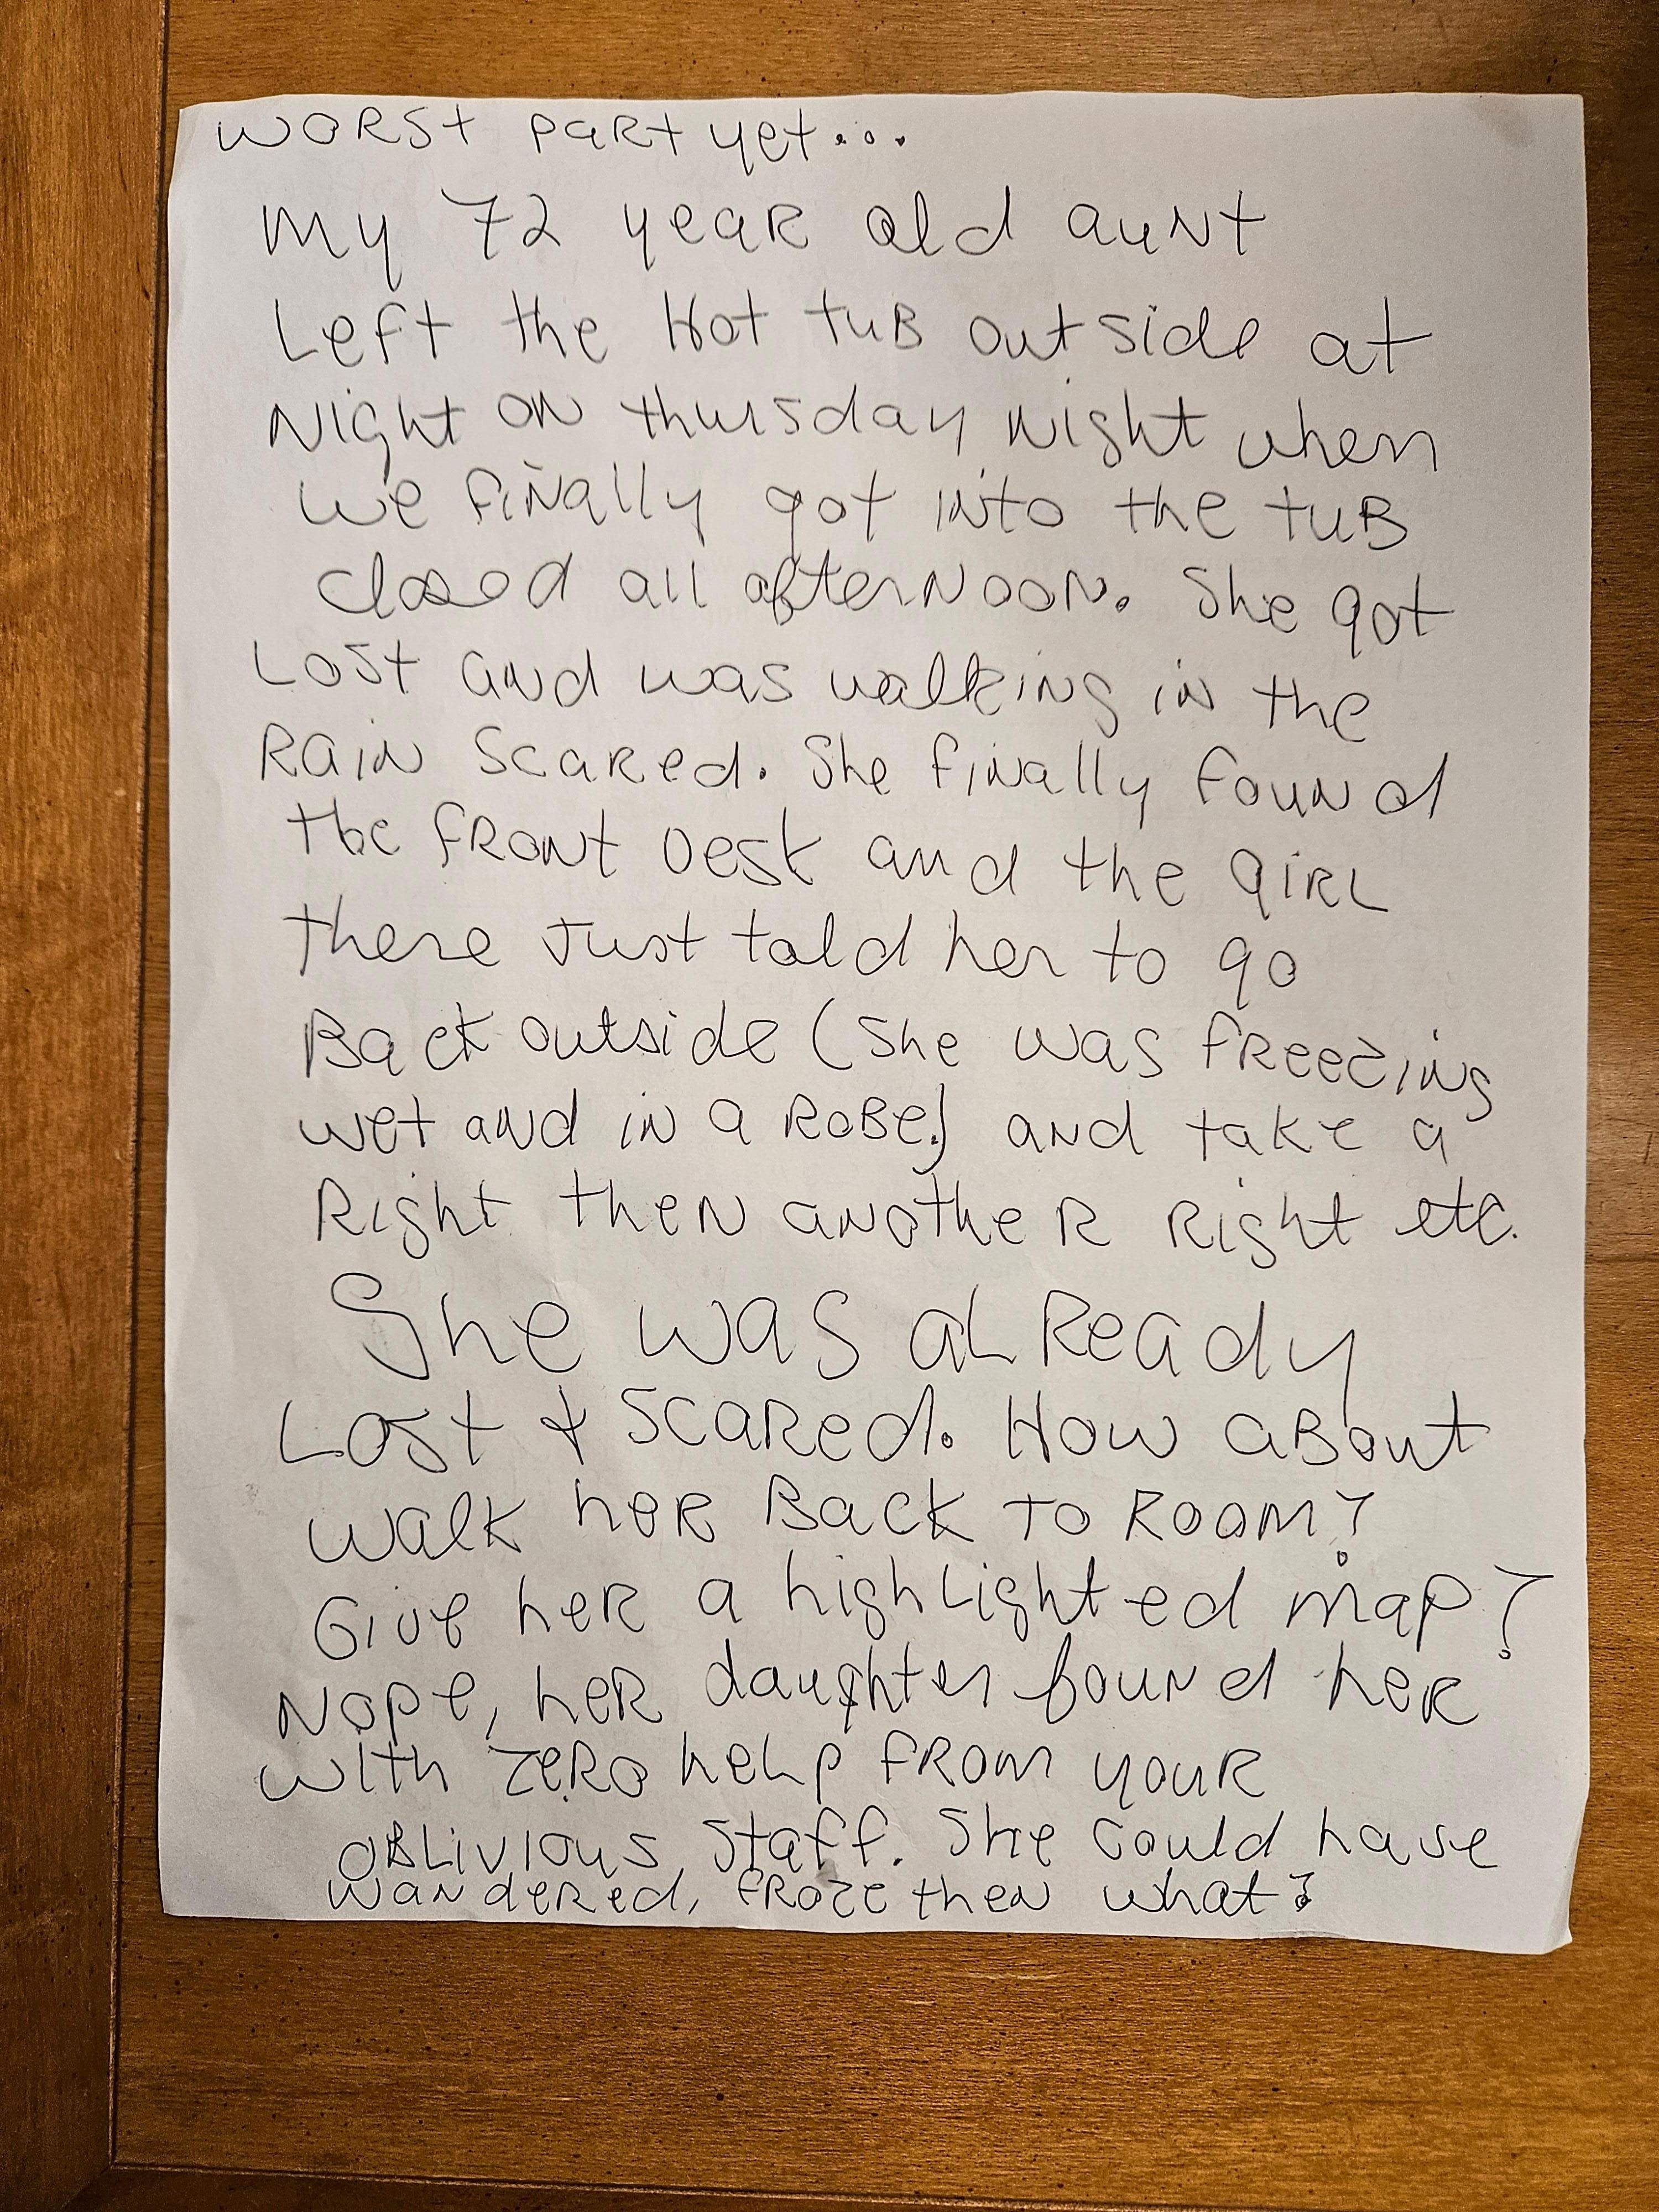 Worst part yet...
My 72 year old aunt
Left the Hot tub outside at
Night on thursday Night when
we finally got into the tub
closed all afternoon. She got
Lost and was walking in the
Rain scared. She finally found
the front Desk and the girl
there Just told her to go
Back outside (she was freezing
wet and in a Robe.) and take a
Right then another Right etc.
She was already
Lost & scared. How about
walk her Back to Room?
Give her a highlighted map?
Nope, her daughter found her
with zero help from your
oblivious staff. She could have
wandered, froze then what?